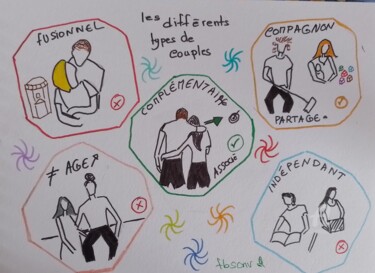 les différents
types de
couples
FUSIONNEL
COMPAGNON
PARTAGE
COMPLÉMENTAIRE
ASSOCIÉ
≠ AGE
INDÉPENDANT